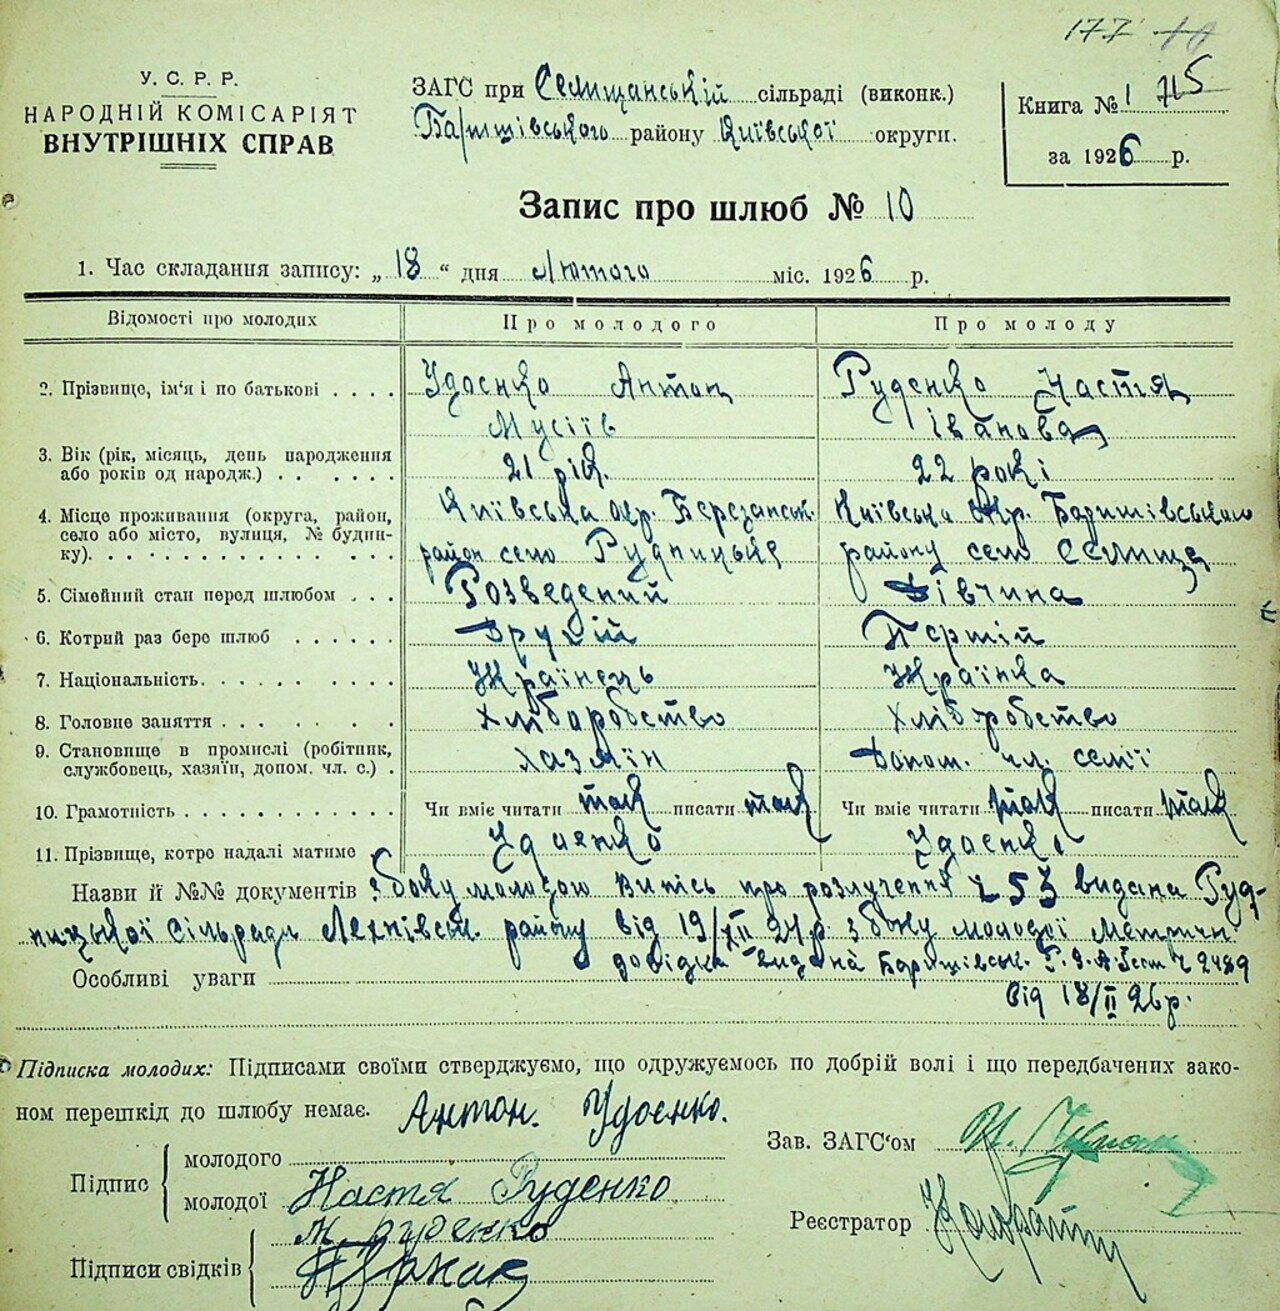 177 10
У. С. Р. Р.
НАРОДНІЙ КОМІСАРІЯТ
ВНУТРІШНІХ СПРАВ
ЗАГС при Селищанській сільраді (виконк.)
Баришівського району Київської округи.
Книга № 1
за 1926 р.
Запис про шлюб № 10
1. Час складання запису: „18“ дня Лютого міс. 1926 р.
Відомості про молодих Про молодого Про молоду
2. Прізвище, ім'я і по батькові . . . . Удоєнко Антон Руденко Настя
Мусіїв Іванова
3. Вік (рік, місяць, день народження
або років од народж.) . . . . . . 21 рік. 22 рокі
4. Місце проживання (округа, район, Київська окр. Березанськ. Київська окр. Баришівського
село або місто, вулиця, № будин-
ку). район село Рудницьке району село Селище
5. Сімейний стан перед шлюбом . . . Розведений Дівчина
6. Котрий раз бере шлюб . . . . . . Другій Перший
7. Національність. . . . . . . . . . Українець Українка
8. Головне заняття . . . . . . . . Хліборобство Хліборобство
9. Становище в промислі (робітник,
службовець, хазяїн, допом. чл. с.) . хазяїн Допом. чл. семії
10. Грамотність . . . . . . . . . . . . Чи вміє читати так писати так Чи вміє читати так писати так
11. Прізвище, котре надалі матиме Удоєнко Удоєнко
Назви й №№ документів з боку молодого Випісь про розлучення 253 видана Руд-
ницької Сільради Лехнівськ. району від 19/XII 24 р. з боку молодої Метричн
довідка видана Баришівськ. 2489
Особливі уваги
від 18/II 26 р.
Підписка молодих: Підписами своїми стверджуємо, що одружуємось по добрій волі і що передбачених зако-
ном перешкід до шлюбу немає. Антон. Удоєнко.
Зав. ЗАГС'ом
Підпис
молодого
молодої Настя Руденко
Реєстратор
Підписи свідків
Руденко